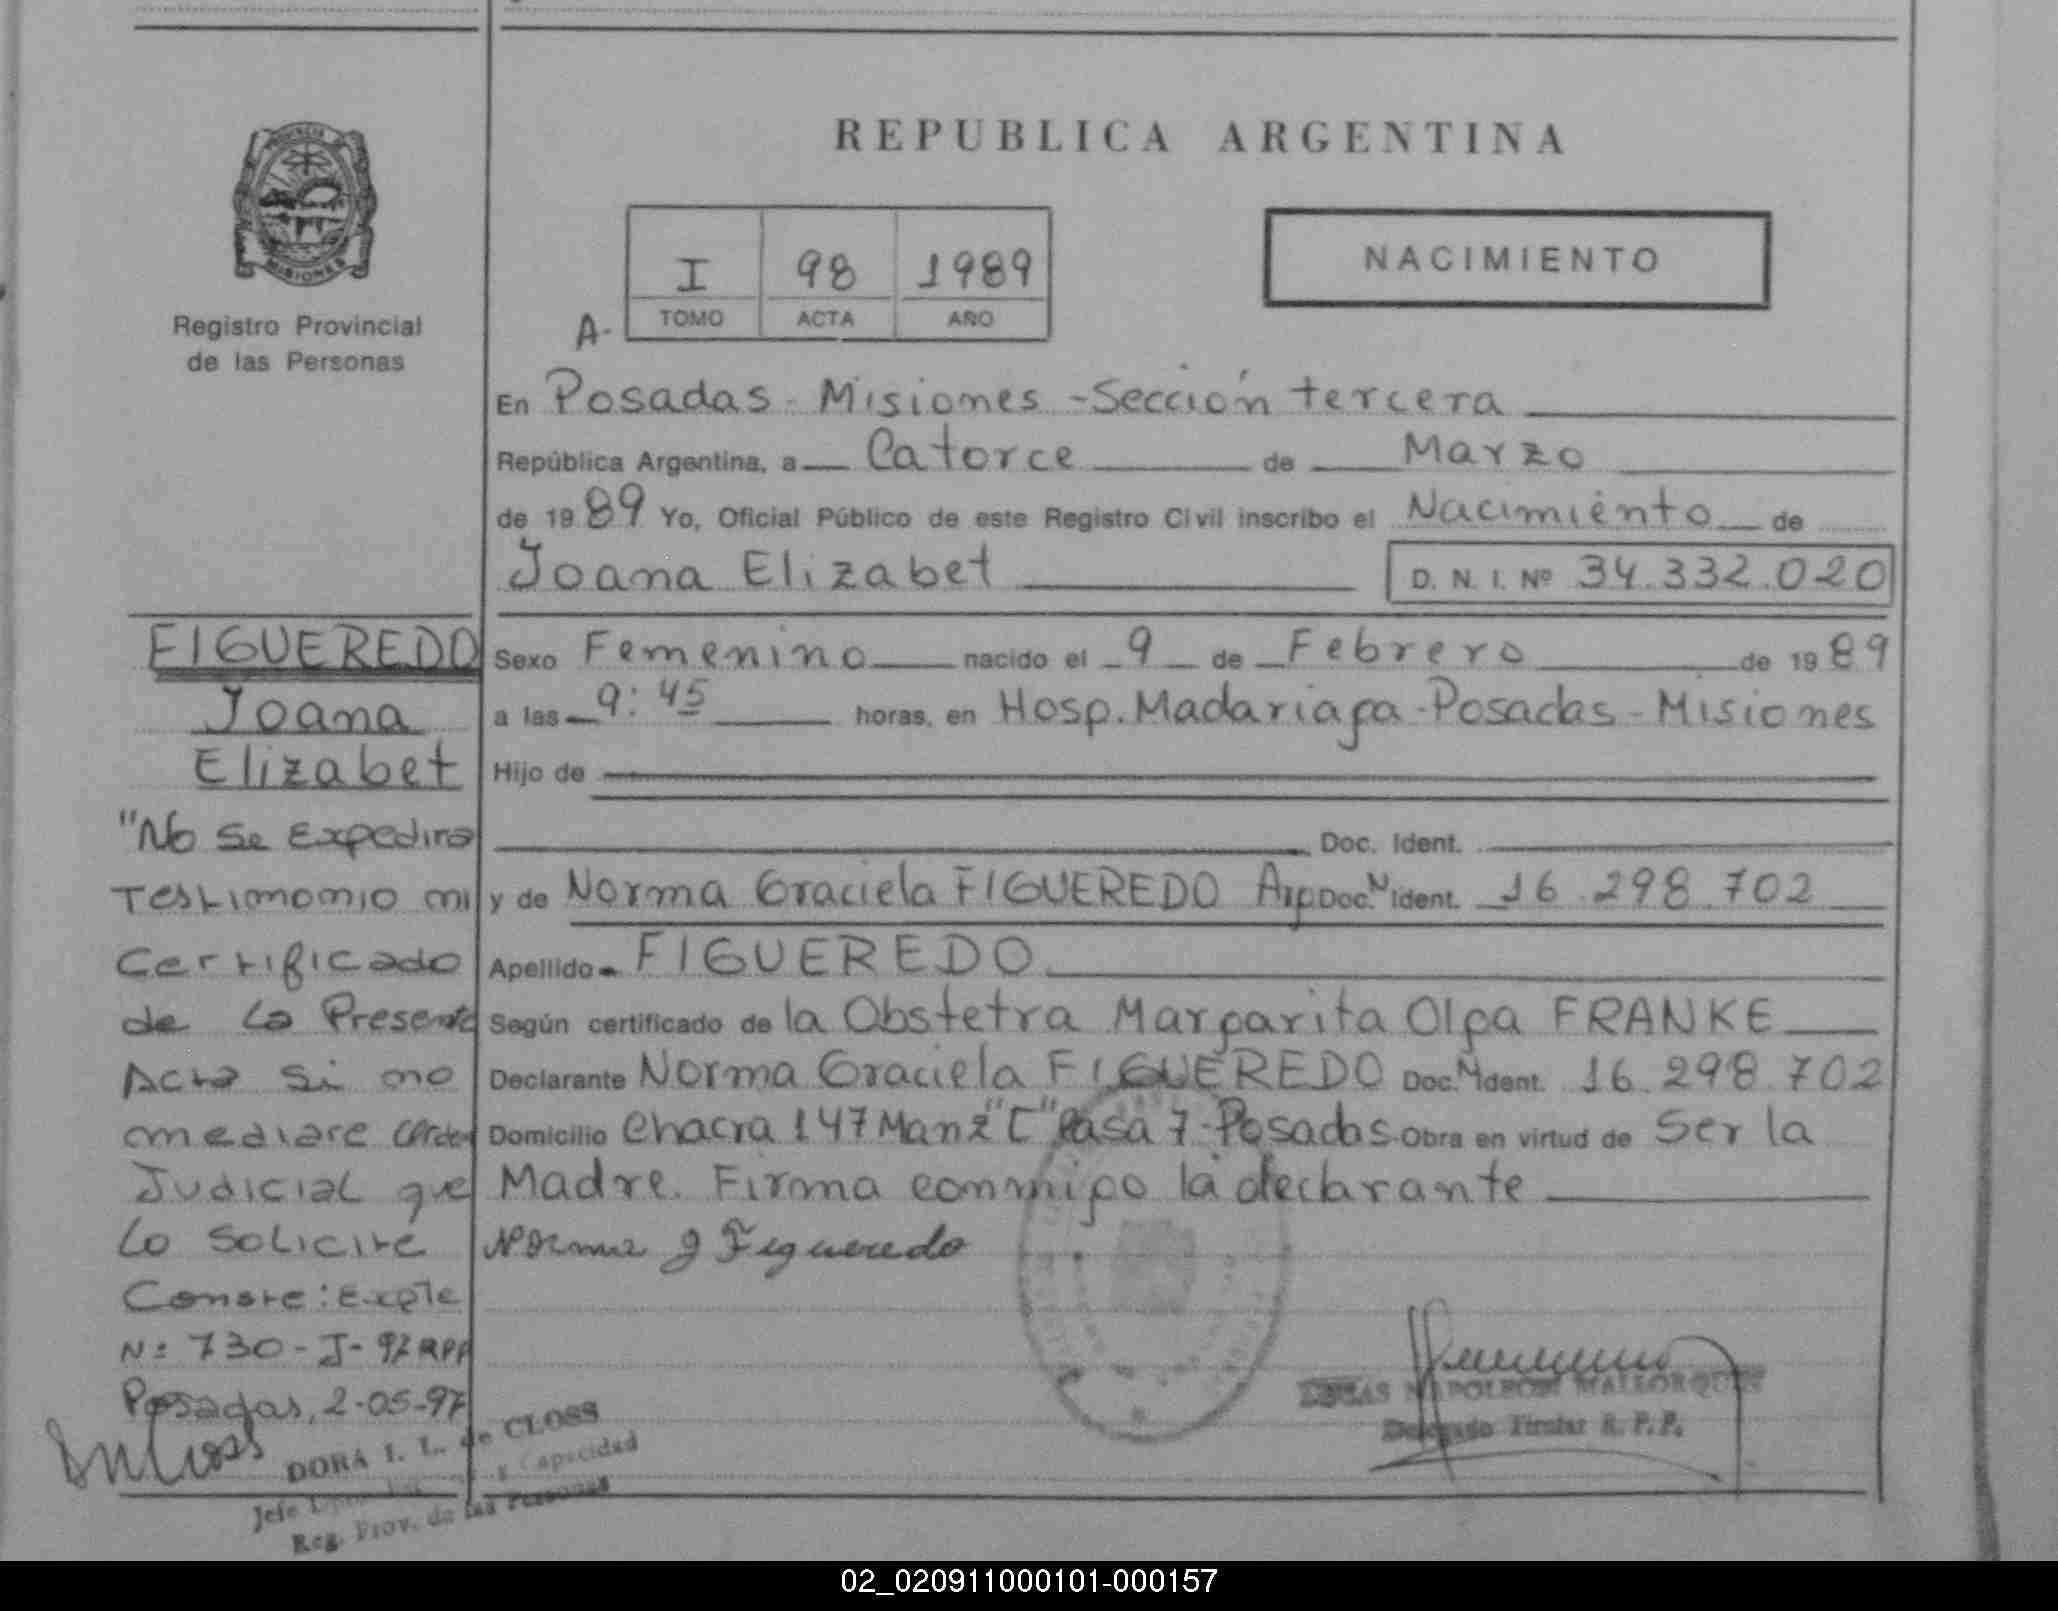 PROVINCIA
MISIONES
Registro Provincial
de las Personas
REPUBLICA ARGENTINA
NACIMIENTO
I 98 1989
A- TOMO ACTA AÑO
En Posadas - Misiones - Sección tercera
República Argentina, a Catorce de Marzo
de 1989 Yo, Oficial Público de este Registro Civil inscribo el Nacimiento de
Joana Elizabet D. N. I. Nº 34.332.020
Sexo Femenino nacido el 9 de Febrero de 1989
a las 9:45 horas, en Hosp. Madariaga - Posadas - Misiones
Hijo de
Doc. Ident.
y de Norma Graciela FIGUEREDO Arg Doc. N Ident. 16.298.702
Apellido FIGUEREDO
Según certificado de la Obstetra Margarita Olga FRANKE
Declarante Norma Graciela FIGUEREDO Doc. N Ident. 16.298.702
Domicilio Chacra 147 Manz "C" Casa 7 - Posadas. Obra en virtud de Ser la
Madre. Firma conmigo la declarante
Norma G Figueredo
FIGUEREDO
Joana
Elizabet
"No Se Expedira
Testimonio ni
Certificado
de La Presente
Acta Si no
mediare Orden
Judicial que
Lo Solicite
Conste: Expte
Nº 730-J-97 RPP
Posadas, 2-05-97
DORA I. L. de CLOSS
Jefe y Capacidad
Reg. Prov. de las Personas
NAPOLEON MALLORQUIN
Delegado Titular R. P. P.
02_020911000101-000157